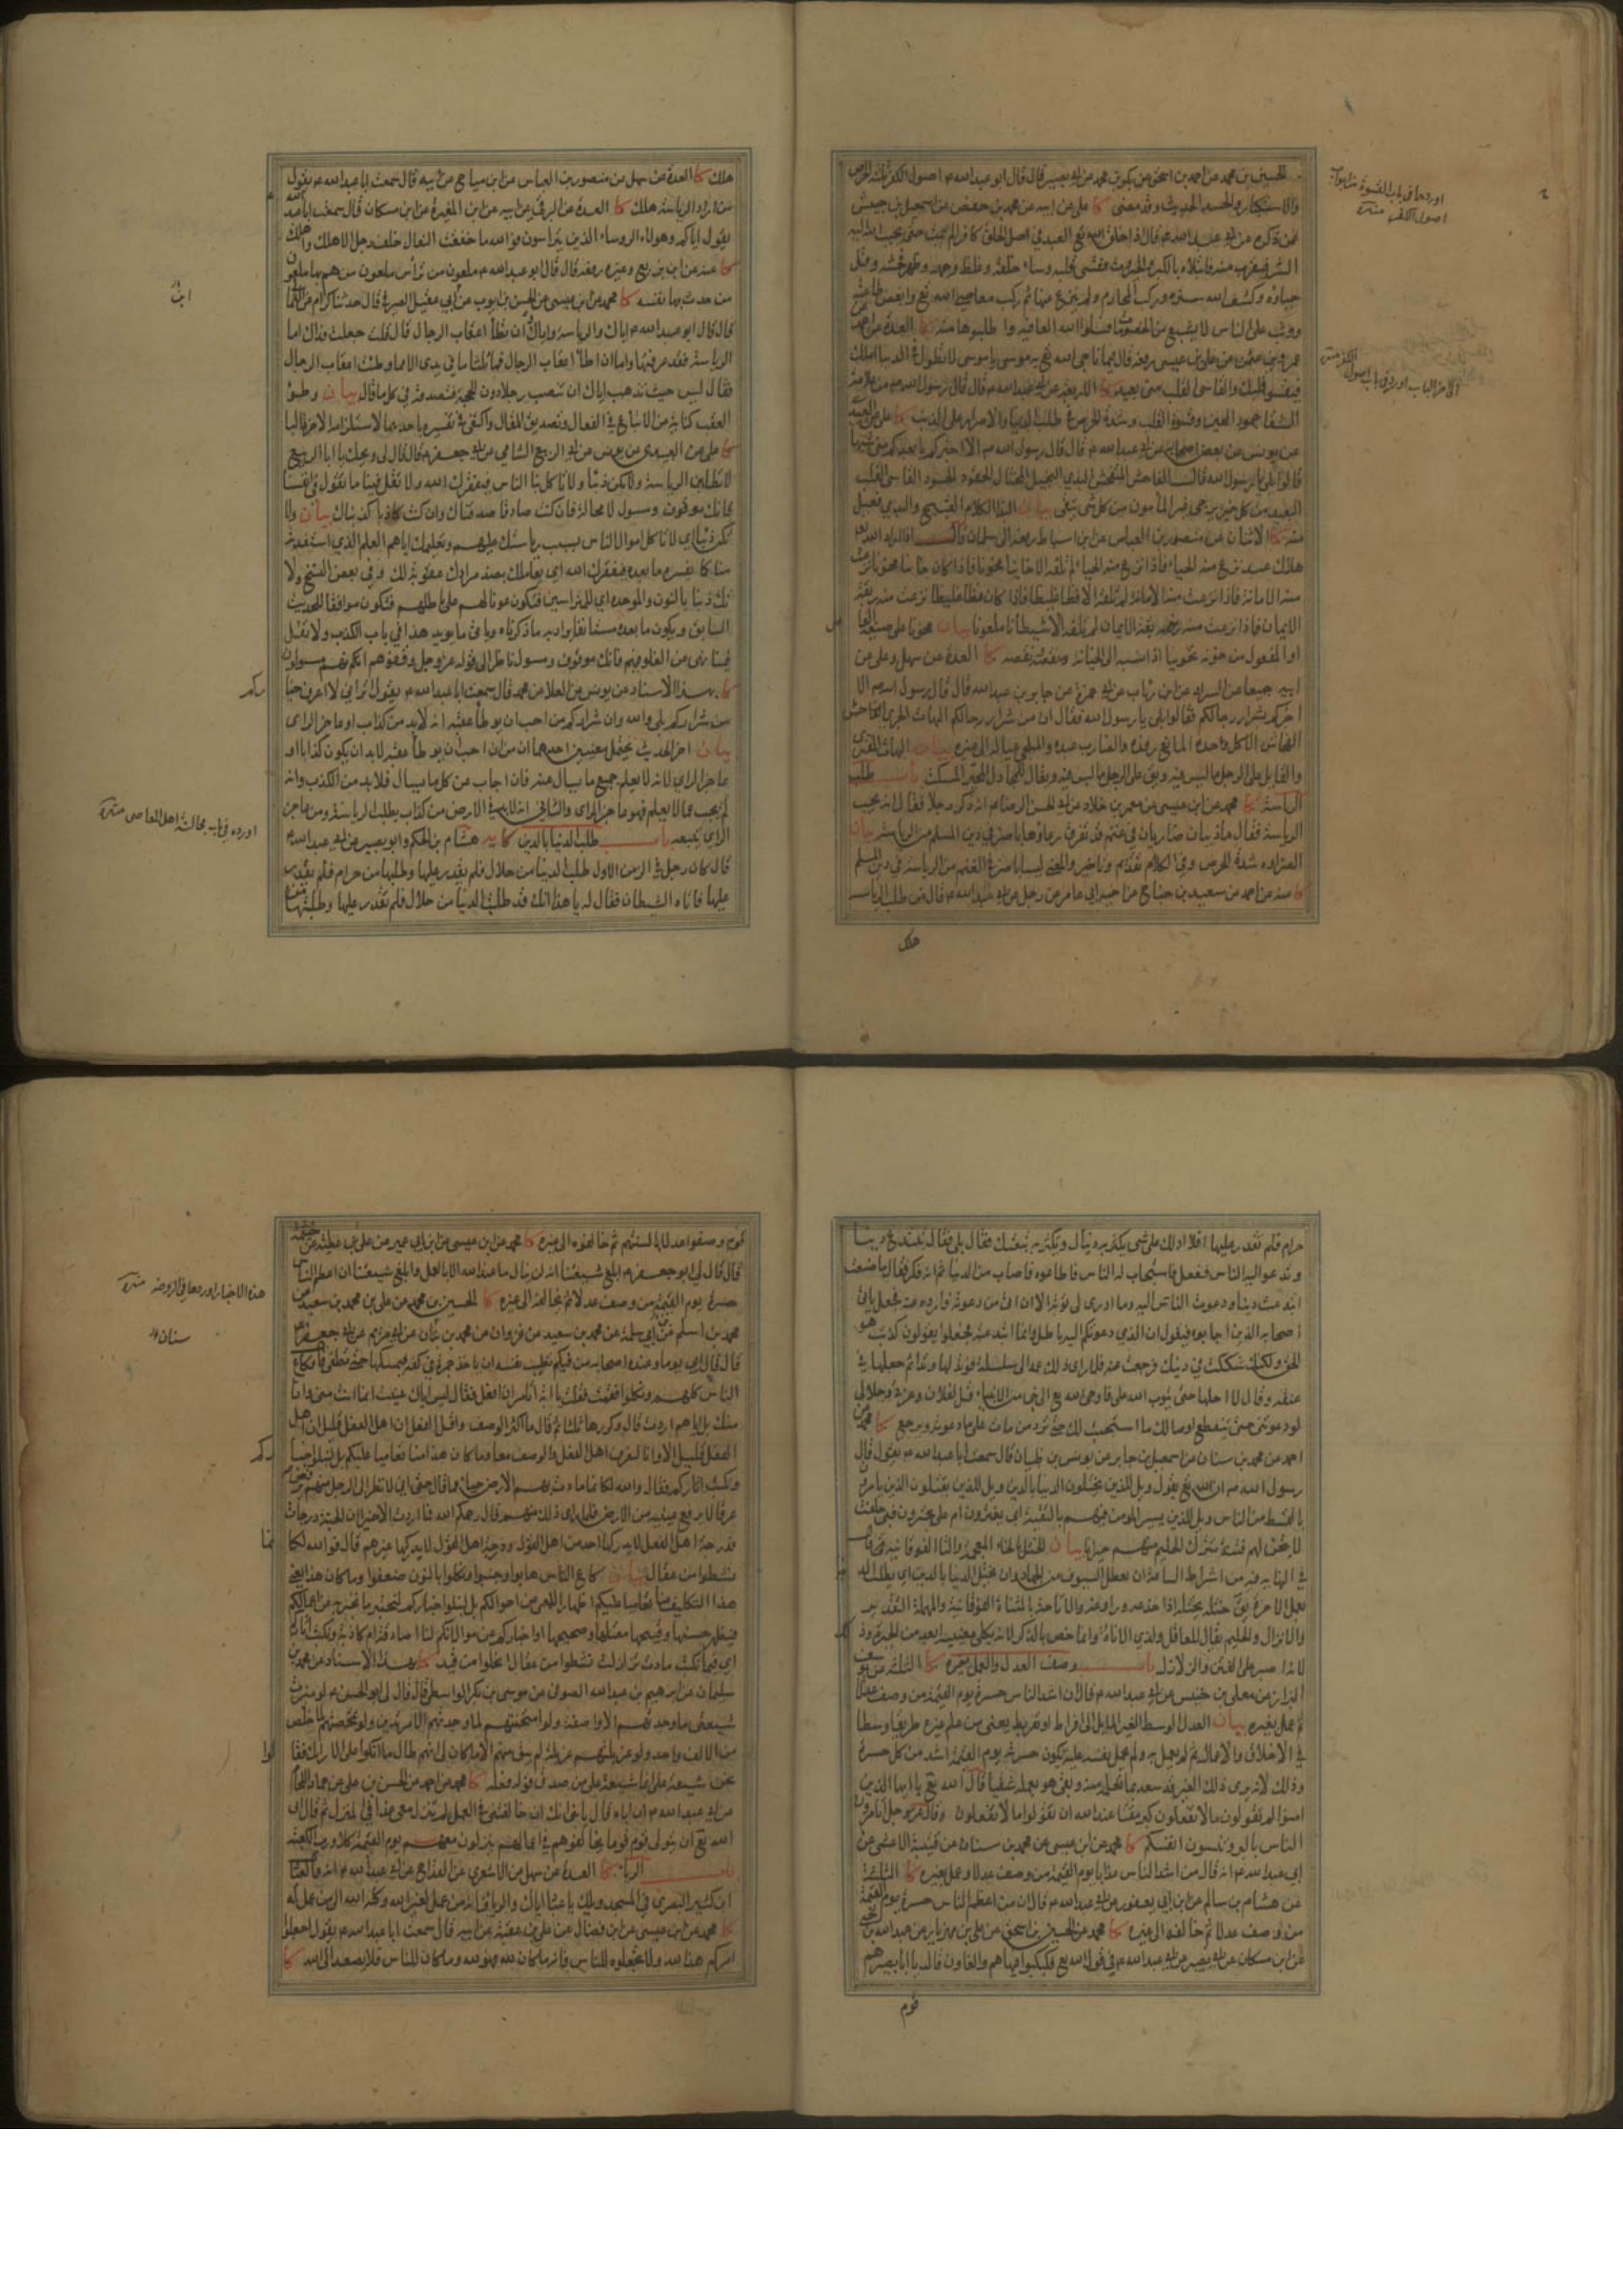 الحسين بن محمد عن احمد بن اسحق عن بكر بن محمد عن ابي بصير قال قال ابو عبد الله ع اصول الكفر ثلثة الحرص
والاستكبار والحسد الحديث وقد مضى كا علي عن ابيه عن محمد بن حفص عن اسمعيل بن دبيس
عمن ذكره عن ابي عبد الله ع قال اذا خلق الله تع العبد في اصل الخلق كافرا لم يمت حتى يحبب الله اليه
الشر فيقرب منه فابتلاه بالكبر والجبروت فقسى قلبه وساء خلقه وغلظ وجهه وظهر فحشه وقل
حياؤه وكشف الله ستره وركب المحارم ولم ينزع عنها ثم ركب معاصي الله تع وابغض طاعته
ووثب على الناس لا يشبع من الخصومات فسلوا الله العافية واطلبوها منه كا العدة عن احمد
عمرو بن عثمن عن علي بن عيسى رفعه قال فيما ناجى الله تع به موسى يا موسى لا تطول في الدنيا املك
فيقسو قلبك والقاسي القلب مني بعيد كا الاربعة عن ابي عبد الله ع قال قال رسول الله ص من علامة
الشقا جمود العين وقسوة القلب وشدة الحرص في طلب الدنيا والاصرار على الذنب كا علي عن العبيدي
عن يونس عن بعض اصحابه عن ابي عبد الله ع قال قال رسول الله ص الا اخبركم بابعدكم مني شبها
قالوا بلى يا رسول الله قال الفاحش المتفحش البذي البخيل المختال الحقود الحسود القاسي القلب
البعيد من كل خير يرجى غير المأمون من كل شر يتقى بيان البذا الكلام القبيح والبذي فعيل
منه كا الاثنان عن منصور بن العباس عن ابن اسباط رفعه الى سلمان قال اذا اراد الله تع
هلاك عبد نزع منه الحياء فاذا نزع منه الحياء لم تلقه الا خائنا مخونا فاذا كان خائنا مخونا نزعت
منه الامانة فاذا نزعت منه الامانة لم تلقه الا فظا غليظا فاذا كان فظا غليظا نزعت منه ربقة
الايمان فاذا نزعت منه ربقة الايمان لم تلقه الا شيطانا ملعونا بيان مخونا على صيغة الفاعل
او المفعول من خونه تخوينا اذا نسبه الى الخيانة ونقصه كا العدة عن سهل وعلي عن
ابيه جميعا عن السراد عن ابن رئاب عن ابي حمزة عن جابر بن عبد الله قال قال رسول الله ص الا
اخبركم بشرار رجالكم فقالوا بلى يا رسول الله فقال ان من شرار رجالكم البهات الجري الفحاش
الاكل وحده المانع رفده والضارب عبده والملجئ عياله الى غيره بيان البهات المفتري
والقايل على الرجل ما ليس فيه باب طلب
الرياسة كا محمد عن ابن عيسى عن معمر بن خلاد عن ابي الحسن الرضا ع انه ذكر رجلا فقال انه يحب
الرياسة فقال ما ذئبان ضاريان في غنم قد تفرق رعاؤها باضر في دين المسلم من الرياسة بيان
الضراوة شدة الحرص وفي الكلام تقديم وتاخير والمعنى ليسا باضر في الغنم من الرياسة في دين المسلم
كا عنه عن احمد عن سعيد بن جناح عن اخيه ابي عامر عن رجل عن ابي عبد الله ع قال من طلب الرياسة
هلك
اوردهما في باب القسوة
اصول الكفر منه
هلك كا العدة عن سهل عن منصور بن العباس عن ابن مياح عن ابيه قال سمعت ابا عبد الله ع يقول
من اراد الرياسة هلك كا العدة عن البرقي عن ابيه عن ابن المغيرة عن ابن مسكان قال سمعت ابا عبد الله
يقول اياكم وهؤلاء الروساء الذين يتراسون فوالله ما خفقت النعال خلف رجل الا هلك واهلك
كا عنه عن ابن بزيع وغيره رفعه قال قال ابو عبد الله ع ملعون من تراس ملعون من هم بها ملعون
من حدث بها نفسه كا محمد عن ابن عيسى عن الحسن بن ايوب عن ابي عقيل الصيرفي قال حدثنا كرام عن الثمالي
قال قال ابو عبد الله ع اياك والرياسة واياك ان تطأ اعقاب الرجال قال قلت جعلت فداك اما
الرياسة فقد عرفتها واما ان اطأ اعقاب الرجال فما ثلثا ما في يدي الا مما وطئت اعقاب الرجال
فقال ليس حيث تذهب اياك ان تنصب رجلا دون الحجة فتصدقه في كل ما قال بيان وطئ
العقب كناية عن الاتباع في الفعال وتصديق المقال واكتفى في تفسيره باحدهما لاستلزامه الاخر غالبا
كا علي عن العبيدي عن يونس عن ابي الربيع الشامي عن ابي جعفر ع قال قال لي ويحك يا ابا الربيع
لا تطلبن الرياسة ولا تكن ذئبا ولا تاكل بنا الناس فيفقرك الله ولا تقل فينا ما نقول في انفسنا
فانك موقوف ومسول لا محالة فان كنت صادقا صدقناك وان كنت كاذبا كذبناك بيان ولا
تكن ذئبا اي لا تاكل اموال الناس بسبب رياستك عليهم وتعليمك اياهم العلم الذي استفدته
منا كما يفسره ما بعده فيفقرك الله اي يعاملك بضد مرادك عقوبة لك وفي بعض النسخ ولا
تك ذنبا بالنون والموحدة اي للمتراسين فتكون عونا لهم على باطلهم فتكون موافقا للحديث
السابق ويكون ما بعده مستانفا يراد به ما ذكرناه وياتي ما يويد هذا في باب الكذب ولا تقل
كا بهذا الاسناد عن يونس عن العلا عن محمد قال سمعت ابا عبد الله ع يقول اتراني لا اعرف خياركم
من شراركم بلى والله وان شراركم من احب ان يوطأ عقبه انه لابد من كذاب او عاجز الراي
بيان اخر الحديث يحتمل معنيين احدهما ان من احب ان يوطأ عقبه لابد ان يكون كذابا او
عاجز الراي لانه لا يعلم جميع ما يسال عنه فان اجاب عن كل ما يسال فلابد من الكذب وان
لم يجب عما لا يعلم فهو عاجز الراي والثاني انه لابد في الارض من كذاب يطلب الرياسة ومن عاجز
الراي يتبعه باب طلب الدنيا بالدين كا يه هشام بن الحكم وابو بصير عن ابي عبد الله ع
قال كان رجل في الزمن الاول طلب الدنيا من حلال فلم يقدر عليها وطلبها من حرام فلم يقدر
عليها فاتاه الشيطان فقال له يا هذا انك قد طلبت الدنيا من حلال فلم تقدر عليها وطلبتها من
اورده في باب مجالسة اهل المعاصي منه
حرام فلم تقدر عليها افلا ادلك على شي يكثر به دنياك ويكثر به تبعك فقال بلى فقال تبتدع دينا
وتدعو اليه الناس ففعل فاستجاب له الناس فاطاعوه فاصاب من الدنيا ثم انه فكر فقال ما صنعت
ابتدعت دينا ودعوت الناس اليه وما ارى لي توبة الا ان اتي من دعوته فارده عنه فجعل ياتي
اصحابه الذين اجابوه فيقول ان الذي دعوتكم اليه باطل وانما ابتدعته فجعلوا يقولون كذبت هو
الحق ولكنك شككت في دينك فرجعت عنه فلما راى ذلك عمد الى سلسلة فوتد لها وتدا ثم جعلها في
عنقه وقال لا احلها حتى يتوب الله علي فاوحى الله تع الى نبي من الانبياء قل لفلان وعزتي وجلالي
لو دعوتني حتى ينقطع اوصالك ما استجبت لك حتى ترد من مات على ما دعوته ويرجع كا محمد عن
احمد عن محمد بن سنان عن اسمعيل بن جابر عن يونس بن ظبيان قال سمعت ابا عبد الله ع يقول قال
رسول الله ص ان الله تع يقول ويل للذين يختلون الدنيا بالدين وويل للذين يقتلون الذين يامرون
بالقسط من الناس وويل للذين يسير المومن فيهم بالتقية ابي يغترون ام علي يجترون فبي حلفت
لاتيحن لهم فتنة تترك الحليم منهم حيرانا بيان الختل بالخاء المعجمة والتاء الفوقانية
في النهاية فيه من اشراط الساعة ان تعطل السيوف من الجهاد وان تختل الدنيا بالدين اي يطلب الدنيا
بعمل الاخرة يقال ختله يختله اذا خدعه وراوغه والاتاحة بالمثناة الفوقانية والمهملة التقدير
والانزال والحليم يقال للعاقل ولذي الاناة وانما خص بالذكر لانه بكلي معنييه ابعد من الحيرة
باب وصف العدل والعمل بغيره كا الثلثة عن يوسف
البزاز عن معلى بن خنيس عن ابي عبد الله ع قال ان اشد الناس حسرة يوم القيمة من وصف عدلا
ثم عمل بغيره بيان العدل الوسط الغير المايل الى افراط او تفريط يعني من علم غيره طريقا وسطا
في الاخلاق والاعمال ثم لم يعمل به ولم يحمل نفسه عليه تكون حسرته يوم القيمة اشد من كل حسرة
وذلك لانه يرى ذلك الغير قد سعد بما تعلمه منه وبقي هو بعلمه شقيا قال الله تع يا ايها الذين
امنوا لم تقولون ما لا تفعلون كبر مقتا عند الله ان تقولوا ما لا تفعلون وقال عز وجل اتامرون
الناس بالبر وتنسون انفسكم كا محمد عن ابن عيسى عن محمد بن سنان عن قتيبة الاعشى عن
ابي عبد الله ع انه قال من اشد الناس عذابا يوم القيمة من وصف عدلا وعمل بغيره كا الثلثة
عن هشام بن سالم عن ابن ابي يعفور عن ابي عبد الله ع قال ان من اعظم الناس حسرة يوم القيمة
من وصف عدلا ثم خالفه الى غيره كا محمد عن الحسين بن اسحق عن علي بن مهزيار عن عبد الله بن يحيى
عن ابن مسكان عن ابي بصير عن ابي عبد الله ع في قول الله تع فكبكبوا فيها هم والغاون قال يا ابا بصير هم
قوم
قوم وصفوا عدلا بالسنتهم ثم خالفوه الى غيره كا محمد عن ابن عيسى عن ابن ابي عمير عن علي بن عطية عن خيثمة
قال قال لي ابو جعفر ع ابلغ شيعتنا انه لن ينال ما عند الله الا بالعمل وابلغ شيعتنا ان اعظم الناس
حسرة يوم القيمة من وصف عدلا ثم يخالفه الى غيره كا الحسين بن محمد عن علي بن محمد بن سعد عن
محمد بن اسلم عن ابي سلمة عن محمد بن سعيد بن غزوان عن محمد بن بنان عن ابي مريم عن ابي جعفر ع
قال قال ابي يوما وعنده اصحابه من فيكم تطيب نفسه ان ياخذ جمرة في كفه فيمسكها حتى تطفى فكاع
الناس كلهم ونكلوا فقمت فقلت يا ابة اتامر ان افعل فقال ليس اياك عنيت انما انت مني وانا
منك بل اياهم اردت قال وكررها ثلثا ثم قال ما اكثر الوصف واقل الفعل ان اهل الفعل قليل ان اهل
الفعل قليل الا وانا لنعرف اهل الفعل والوصف معا وما كان هذا منا تعاميا عليكم بل لنبلو اخباركم
ونكتب اثاركم فقال والله لكانما مادت بهم الارض حياء مما قال حتى اني لانظر الى الرجل منهم يرفض
عرقا ما يرفع عينيه من الارض فلما راى ذلك منهم قال رحمكم الله فما اردت الا خيرا ان الجنة درجات
فدرجة اهل الفعل لا يدركها احد من اهل القول ودرجة اهل القول لا يدركها غيرهم قال فوالله لكانما
نشطوا من عقال بيان كاع الناس هابوا وجبنوا ونكلوا بالنون ضعفوا وما كان هذا يعني
سليمان عن ابرهيم بن عبد الله الصوفي عن موسى بن بكر الواسطي قال قال لي ابو الحسن ع لو ميزت
شيعتي ما وجدتهم الا واصفة ولو امتحنتهم لما وجدتهم الا مرتدين ولو تمحصتهم لما خلص
من الالف واحد ولو غربلتهم غربلة لم يبق منهم الا ما كان لي انهم طال ما اتكوا على الارائك فقالوا
نحن شيعة علي انما شيعة علي من صدق قوله فعله
باب الرياء كا العدة عن سهل عن الاشعري عن القداح عن ابي عبد الله ع انه قال لعباد
ابن كثير البصري في المسجد ويلك يا عباد اياك والرياء فانه من عمل لغير الله وكله الله الى من عمل له
كا محمد عن ابن عيسى عن ابن فضال عن علي بن عقبة عن ابيه قال سمعت ابا عبد الله ع يقول اجعلوا
امركم هذا لله ولا تجعلوه للناس فانه ما كان لله فهو لله وما كان للناس فلا يصعد الى الله كا
هذه الاخبار اوردها في الروضة منه
سنان